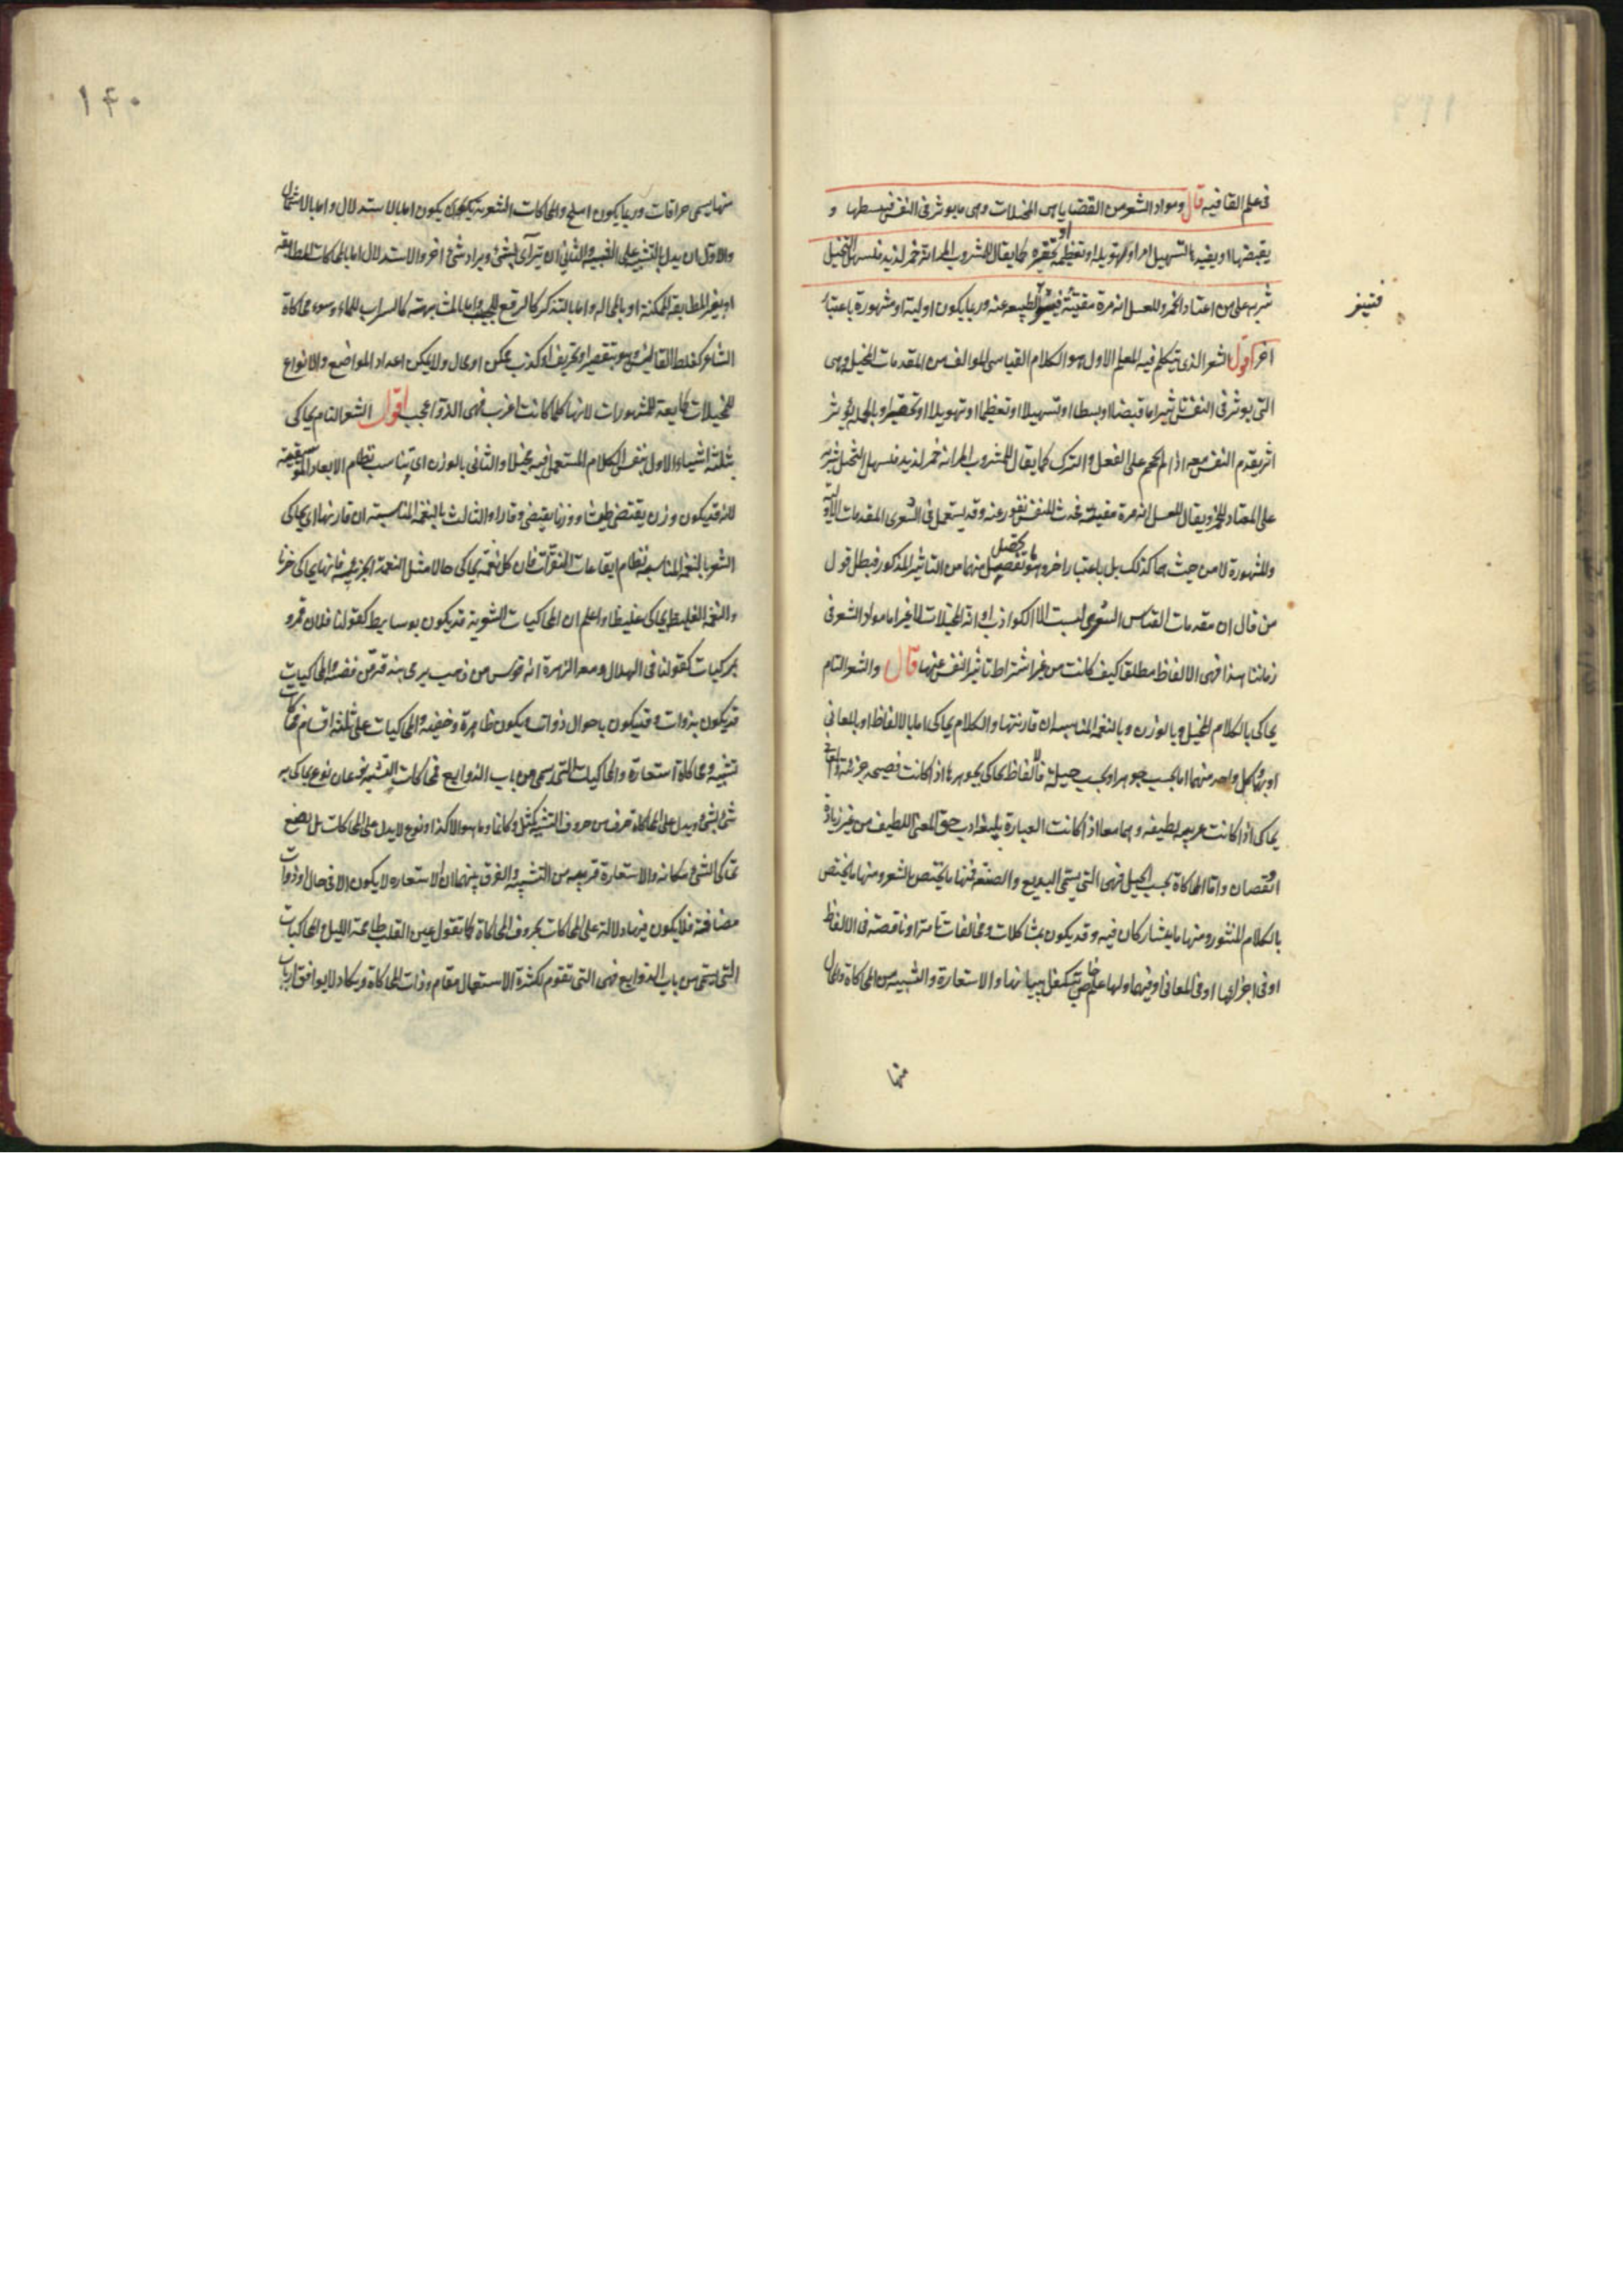 فى علم القافيه قال ومواد الشعر من القضايا هى المخيلات وهى ما يوثر فى النفس فيبسطها و
يقبضها او يفيدها لتسهيل امر او تهويله او تعظيمه او تحقيره كما يقال للمشروب المر انه خمر لذيذ فيسهل التخيل
شربه على من اعتاد الخمر وللعسل انه مرة مقيئة الطبيعه عنه وربما يكون اولية او مشهورة باعتبار
اخر اقول الشعر الذى يتكلم فيه المعلم الاول هو الكلام القياسى المولف من المقدمات المخيل وهى
التى يوثر فى النفس تاثيرا ما قبضا او بسطا او تسهيلا او تعظيما او تهويلا او تحقيرا وبالجملة يوثر
اثر يقدم النفس معه اذا لم يحجم على الفعل والترك كما يقال للمشروب المر انه خمر لذيذ فيسهل التخيل شربه
على المعتاد للخمر ويقال للعسل انه مرة مقيئة فيحدث للنفس نفور عنه وقد يستعمل فى الشعرى المقدمات الاولية
والمشهورة لا من حيث هما كذلك بل باعتبار اخر وهو تحصيل منهما من التاثير المذكور فبطل قول
من قال ان مقدمات القياس الشعرى ليست الا الكواذب او انه المخيلات لا غير اما مواد الشعر فى
زماننا هذا فهى الالفاظ مطلقا كيف كانت من غير اشتراط تاثير النفس عنها قال والشعر التام
يحاكى بالكلام المخيل وبالوزن وبالنغمة المناسبه ان قارنتها والكلام يحاكى اما بالالفاظ او بالمعانى
او بهما وكل واحد منهما اما بحسب جوهر او بحسب حيلة فالالفاظ يحاكى بجوهرها اذا كانت فصيحه جزلة
يحاكى اذا كانت غريبه لطيفه وهما معا اذا كانت العبارة بليغة اديب حق المعنى اللطيف من غير زيادة
او نقصان واما المحاكاة بحسب الحيل فهى التى يسمى البديع والصنعة فمنها ما يختص بالشعر ومنها ما يختص
بالكلام المنثور ومنها ما يتشاركان فيه وقد يكون بمشاكلات ومخالفات تامة او ناقصة فى الالفاظ
او فى اجزائها او فى المعانى او فيهما ولها علم خاص يتكفل ببيانها والاستعارة والتشبيه من المحاكاة والمحال
منها
فتينفر
١٤٠
منها يسمى خرافات وربما يكون املح والمحاكات الشعرية يكون اما بالاستدلال واما بالاشتمال
والاول ان يدل بالشبيه على الشبيه والثانى ان يترآى بشئ ويراد شئ اخر والاستدلال اما بالمحاكات المطابقه
او بغير المطابقه الممكنة او بالمحاله واما بالتذكر كالربع للحبيب واما بالمشابهة كالسراب للماء وسوء محاكاة
الشاعر كغلط القائس وهو بتقصير او تحريف او كذب ممكن او محال ولا يمكن اعداد المواضع والانواع
للمخيلات كما يعد للمشهورات لانها كلما كانت اغرب فهى الذ واعجب اقول الشعر التام يحاكى
بثلثة اشياء الاول بنفس الكلام المستعمل فيه مخيلا والثانى بالوزن اى تناسب نظام الابعاد الموسيقيه
لانه قد يكون وزن يقتضى طيشا ووزنا يقتضى وقارا والثالث بالنغمة المناسبة ان قارنها اى يحاكى
الشعر بالنغمة المناسبه نظام ايقاعات النقرات فان كل نغمة يحاكى حالا مثل النغمة الحزينة فانها يحاكى حزنا
والنغمة الغليظة يحاكى غليظا واعلم ان المحاكيات الشعرية قد يكون بوسايط كقولنا فلان قمر و
بمركبات كقولنا فى الهلال ومعه الزهرة انه قوس من ذهب يرمى بندقة من فضه والمحاكيات
قد يكون بذوات وقد يكون باحوال ذوات ويكون ظاهرة وخفيفه والمحاكيات على ثلثه اقسام محاكات
تشبيه ومحاكاة استعارة والمحاكيات التى يسمى من باب الذوايع فمحاكات التشبيه نوعان نوع يحاكى به
شئ بشئ ويدل على المحاكاة حرف من حروف التشبيه كمثل وكانما وما هو الا كذا ونوع لا يدل على المحاكات بل يضع
محاكى الشئ مكانه والاستعارة قريبه من التشبيه والفرق بينهما ان الاستعاره لا يكون الا فى حال او ذوات
مضافة فلا يكون فيها دلالة على المحاكات بحروف المحاكاة كما تقول عين القلب طامحة الليل والمحاكيات
التى يسمى من باب الذوايع فهى التى تقوم لكثرة الاستعمال مقام وذات المحاكاة ويكاد لا يوافق ارباب